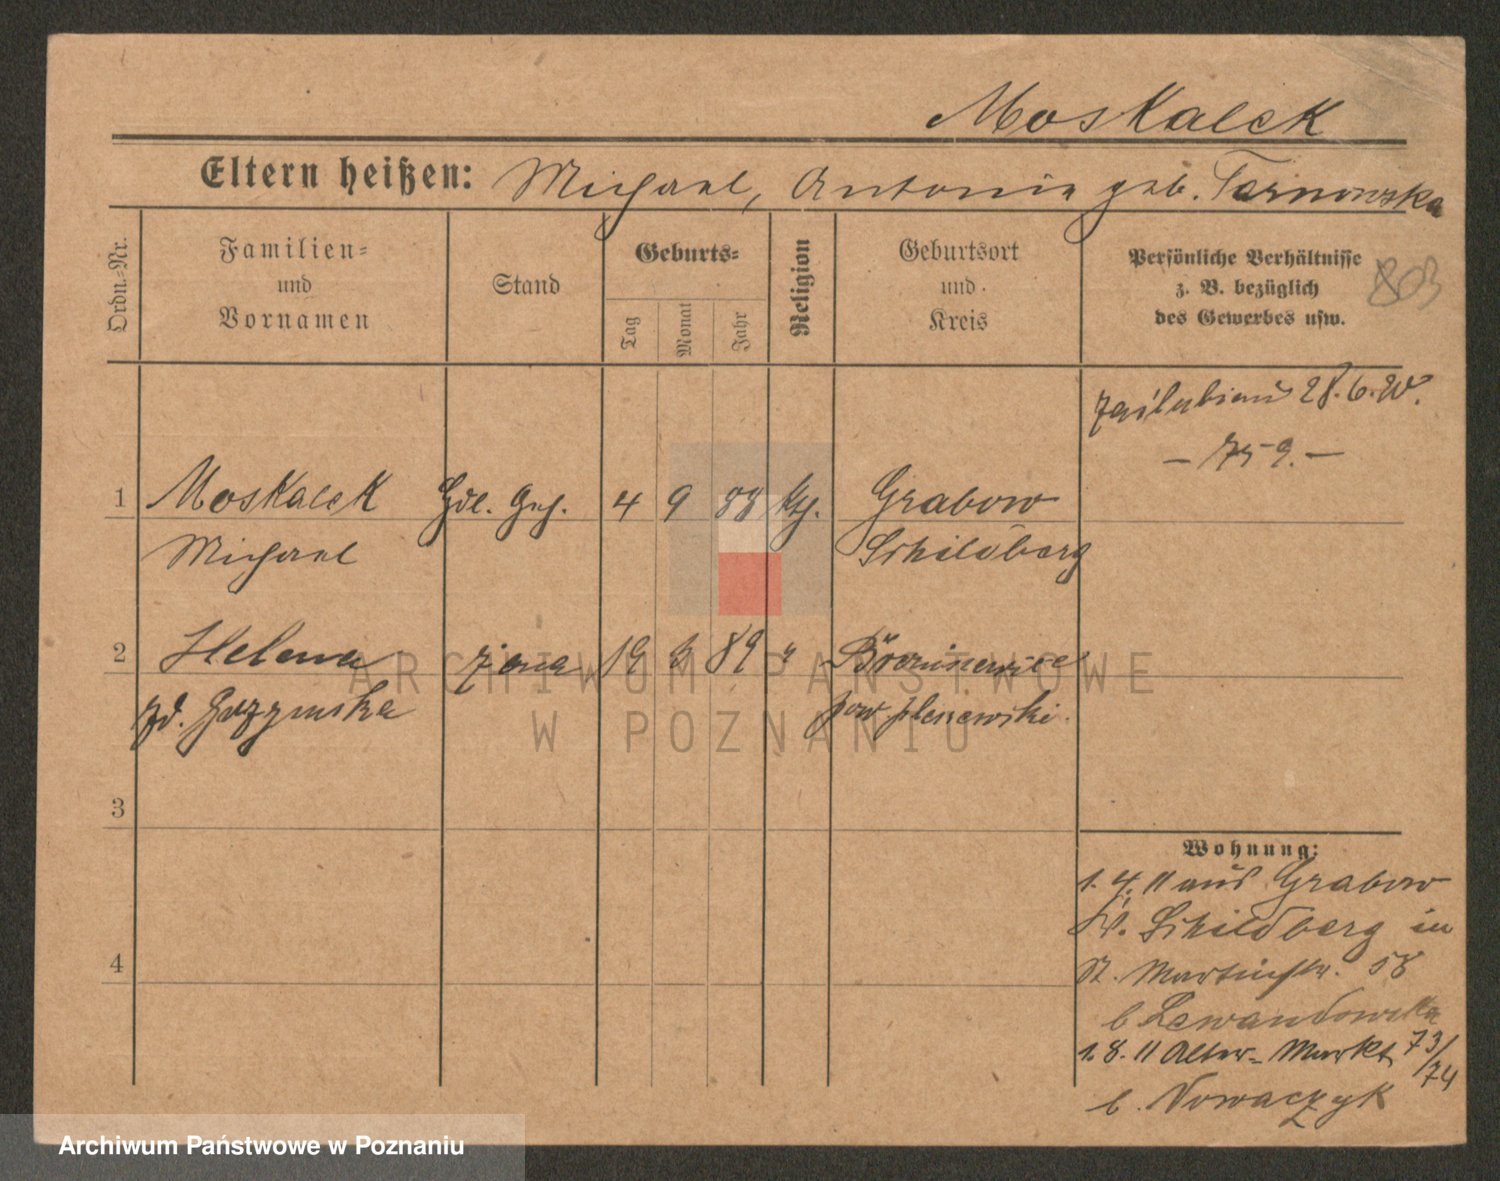 Moskalek
Eltern heißen: Michael, Antonie geb. Tarnowska
Ordn.-Nr.
Familien-
und
Vornamen
Stand
Geburts-
Tag
Monat
Jahr
Religion
Geburtsort
und
Kreis
Persönliche Verhältnisse
z. B. bezüglich
des Gewerbes usw.
zaślubieni 28.6.20.
— 759. —
1 Moskalek Hdl. Geh. 4 9 88 kth. Grabow
Michael Schildberg
2 Helena żona 19 3 89 "
pow. pleszewski.
3
4
Wohnung:
1.4.11 aus Grabow
Kr. Schildberg in
St. Martinstr. 58
b Lewandowska
1.8.11 Alter-Markt 73/74
b. Nowaczyk
ARCHIWUM PAŃSTWOWE
W POZNANIU
Archiwum Państwowe w Poznaniu